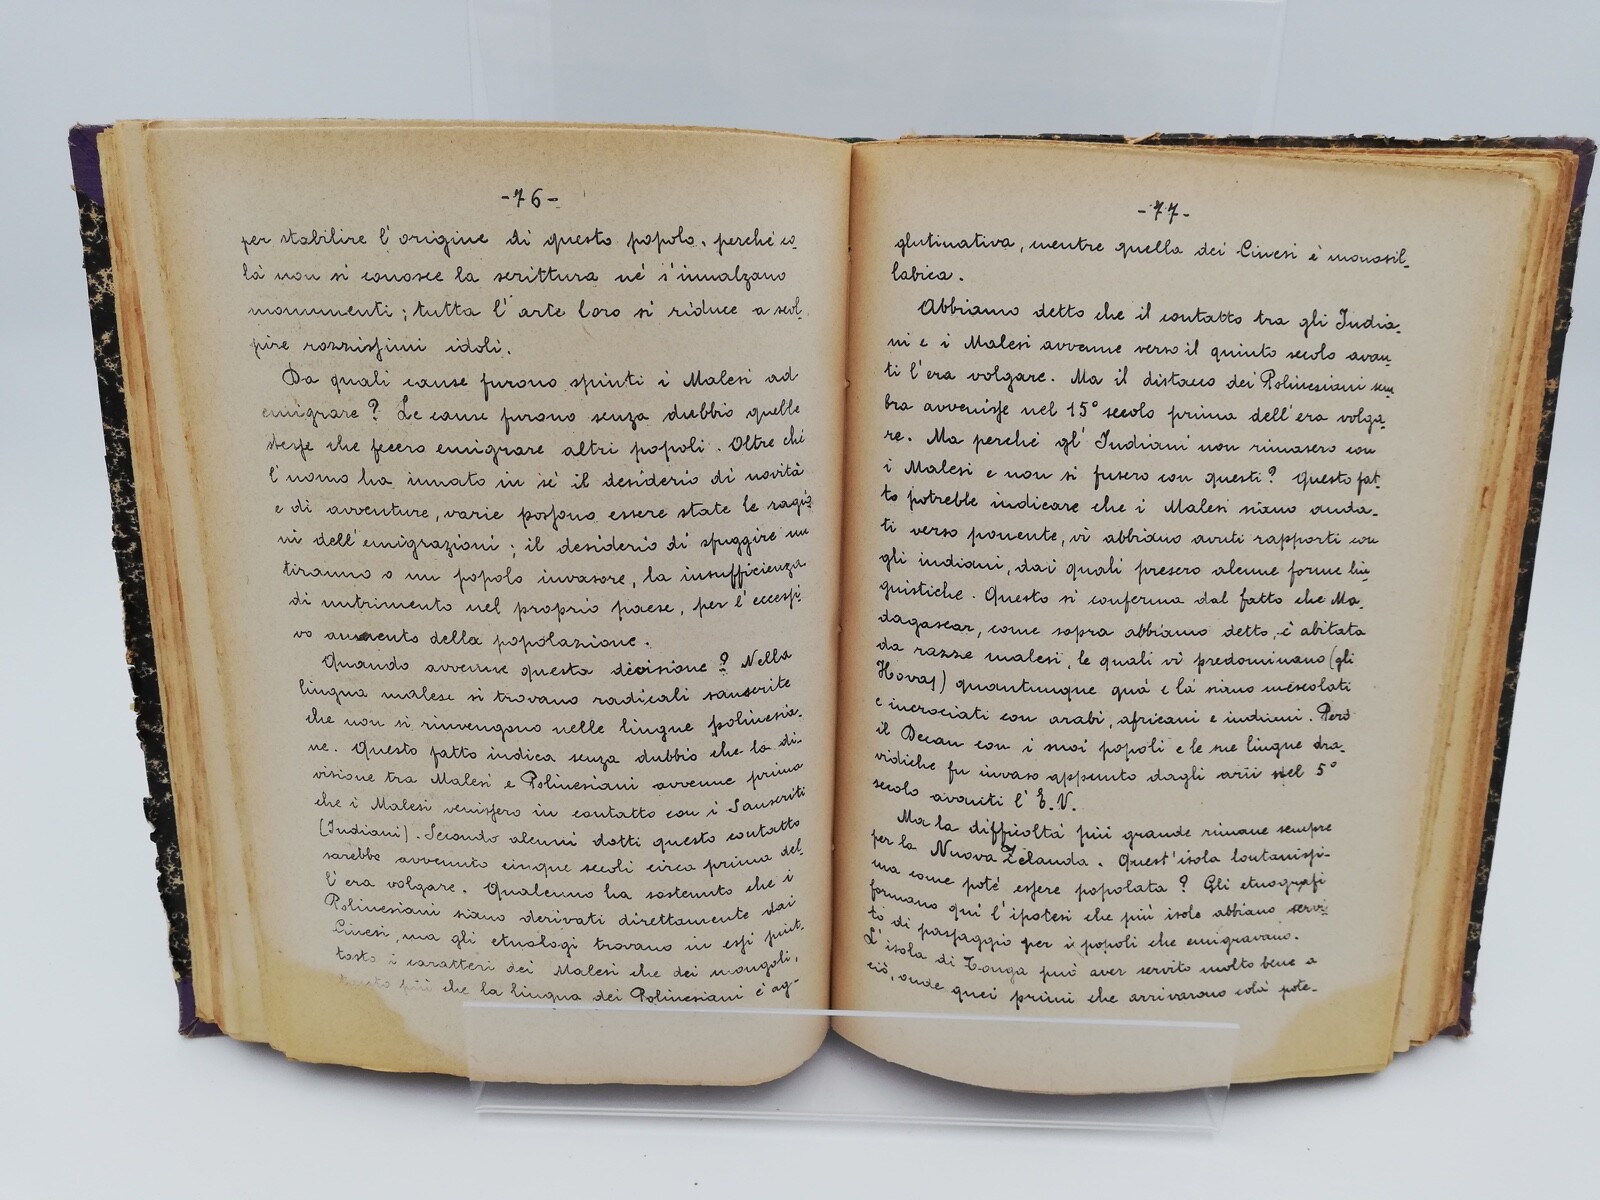 -76-
per stabilire l'origine di questo popolo, perché co
là non si conosce la scrittura né s'innalzano
monumenti; tutta l'arte loro si riduce a scol-
pire rozzissimi idoli.
Da quali cause furono spinti i Malesi ad
emigrare? Le cause furono senza dubbio quelle
stesse che fecero emigrare altri popoli. Oltre chè
l'uomo ha innato in sè il desiderio di novità
e di avventure, varie possono essere state le ragio-
ni dell'emigrazioni; il desiderio di sfuggire un
tiranno o un popolo invasore, la insufficienza
di nutrimento nel proprio paese, per l'eccessi-
vo aumento della popolazione.
Quando avvenne questa decisione? Nella
lingua malese si trovano radicali sanscrite
che non si rinvengono nelle lingue polinesia-
ne. Questo fatto indica senza dubbio che la di-
visione tra Malesi e Polinesiani avvenne prima
che i Malesi venissero in contatto con i Sanscriti
(Indiani). Secondo alcuni dotti questo contatto
sarebbe avvenuto cinque secoli circa prima del-
l'era volgare. Qualcuno ha sostenuto che i
Polinesiani siano derivati direttamente dai
Cinesi, ma gli etnologi trovano in essi piut-
tosto i caratteri dei Malesi che dei mongoli,
tanto più che la lingua dei Polinesiani è ag-
-77-
glutinativa, mentre quella dei Cinesi è monosil-
labica.
Abbiamo detto che il contatto tra gli India-
ni e i Malesi avvenne verso il quinto secolo avan-
ti l'era volgare. Ma il distacco dei Polinesiani sem
bra avvenisse nel 15° secolo prima dell'era volga-
re. Ma perché gl'Indiani non rimasero con
i Malesi e non si fusero con questi? Questo fat-
to potrebbe indicare che i Malesi siano anda-
ti verso ponente, vi abbiano avuti rapporti con
gli indiani, dai quali presero alcune forme lin-
guistiche. Questo si conferma dal fatto che Ma-
dagascar, come sopra abbiamo detto, è abitata
da razze malesi, le quali vi predominano (gli
Hovas) quantunque quà e là siano mescolati
e incrociati con arabi, africani e indiani. Però
il Decan con i suoi popoli e le sue lingue dra-
vidiche fu invaso appunto dagli arii nel 5°
secolo avanti l'E.V.
Ma la difficoltà più grande rimane sempre
per la Nuova Zelanda. Quest'isola lontanissi-
ma come poté essere popolata? Gli etnografi
formano qui l'ipotesi che più isole abbiano servi-
to di passaggio per i popoli che emigravano.
L'isola di Tonga può aver servito molto bene a
ciò, onde quei primi che arrivarono colà pote-